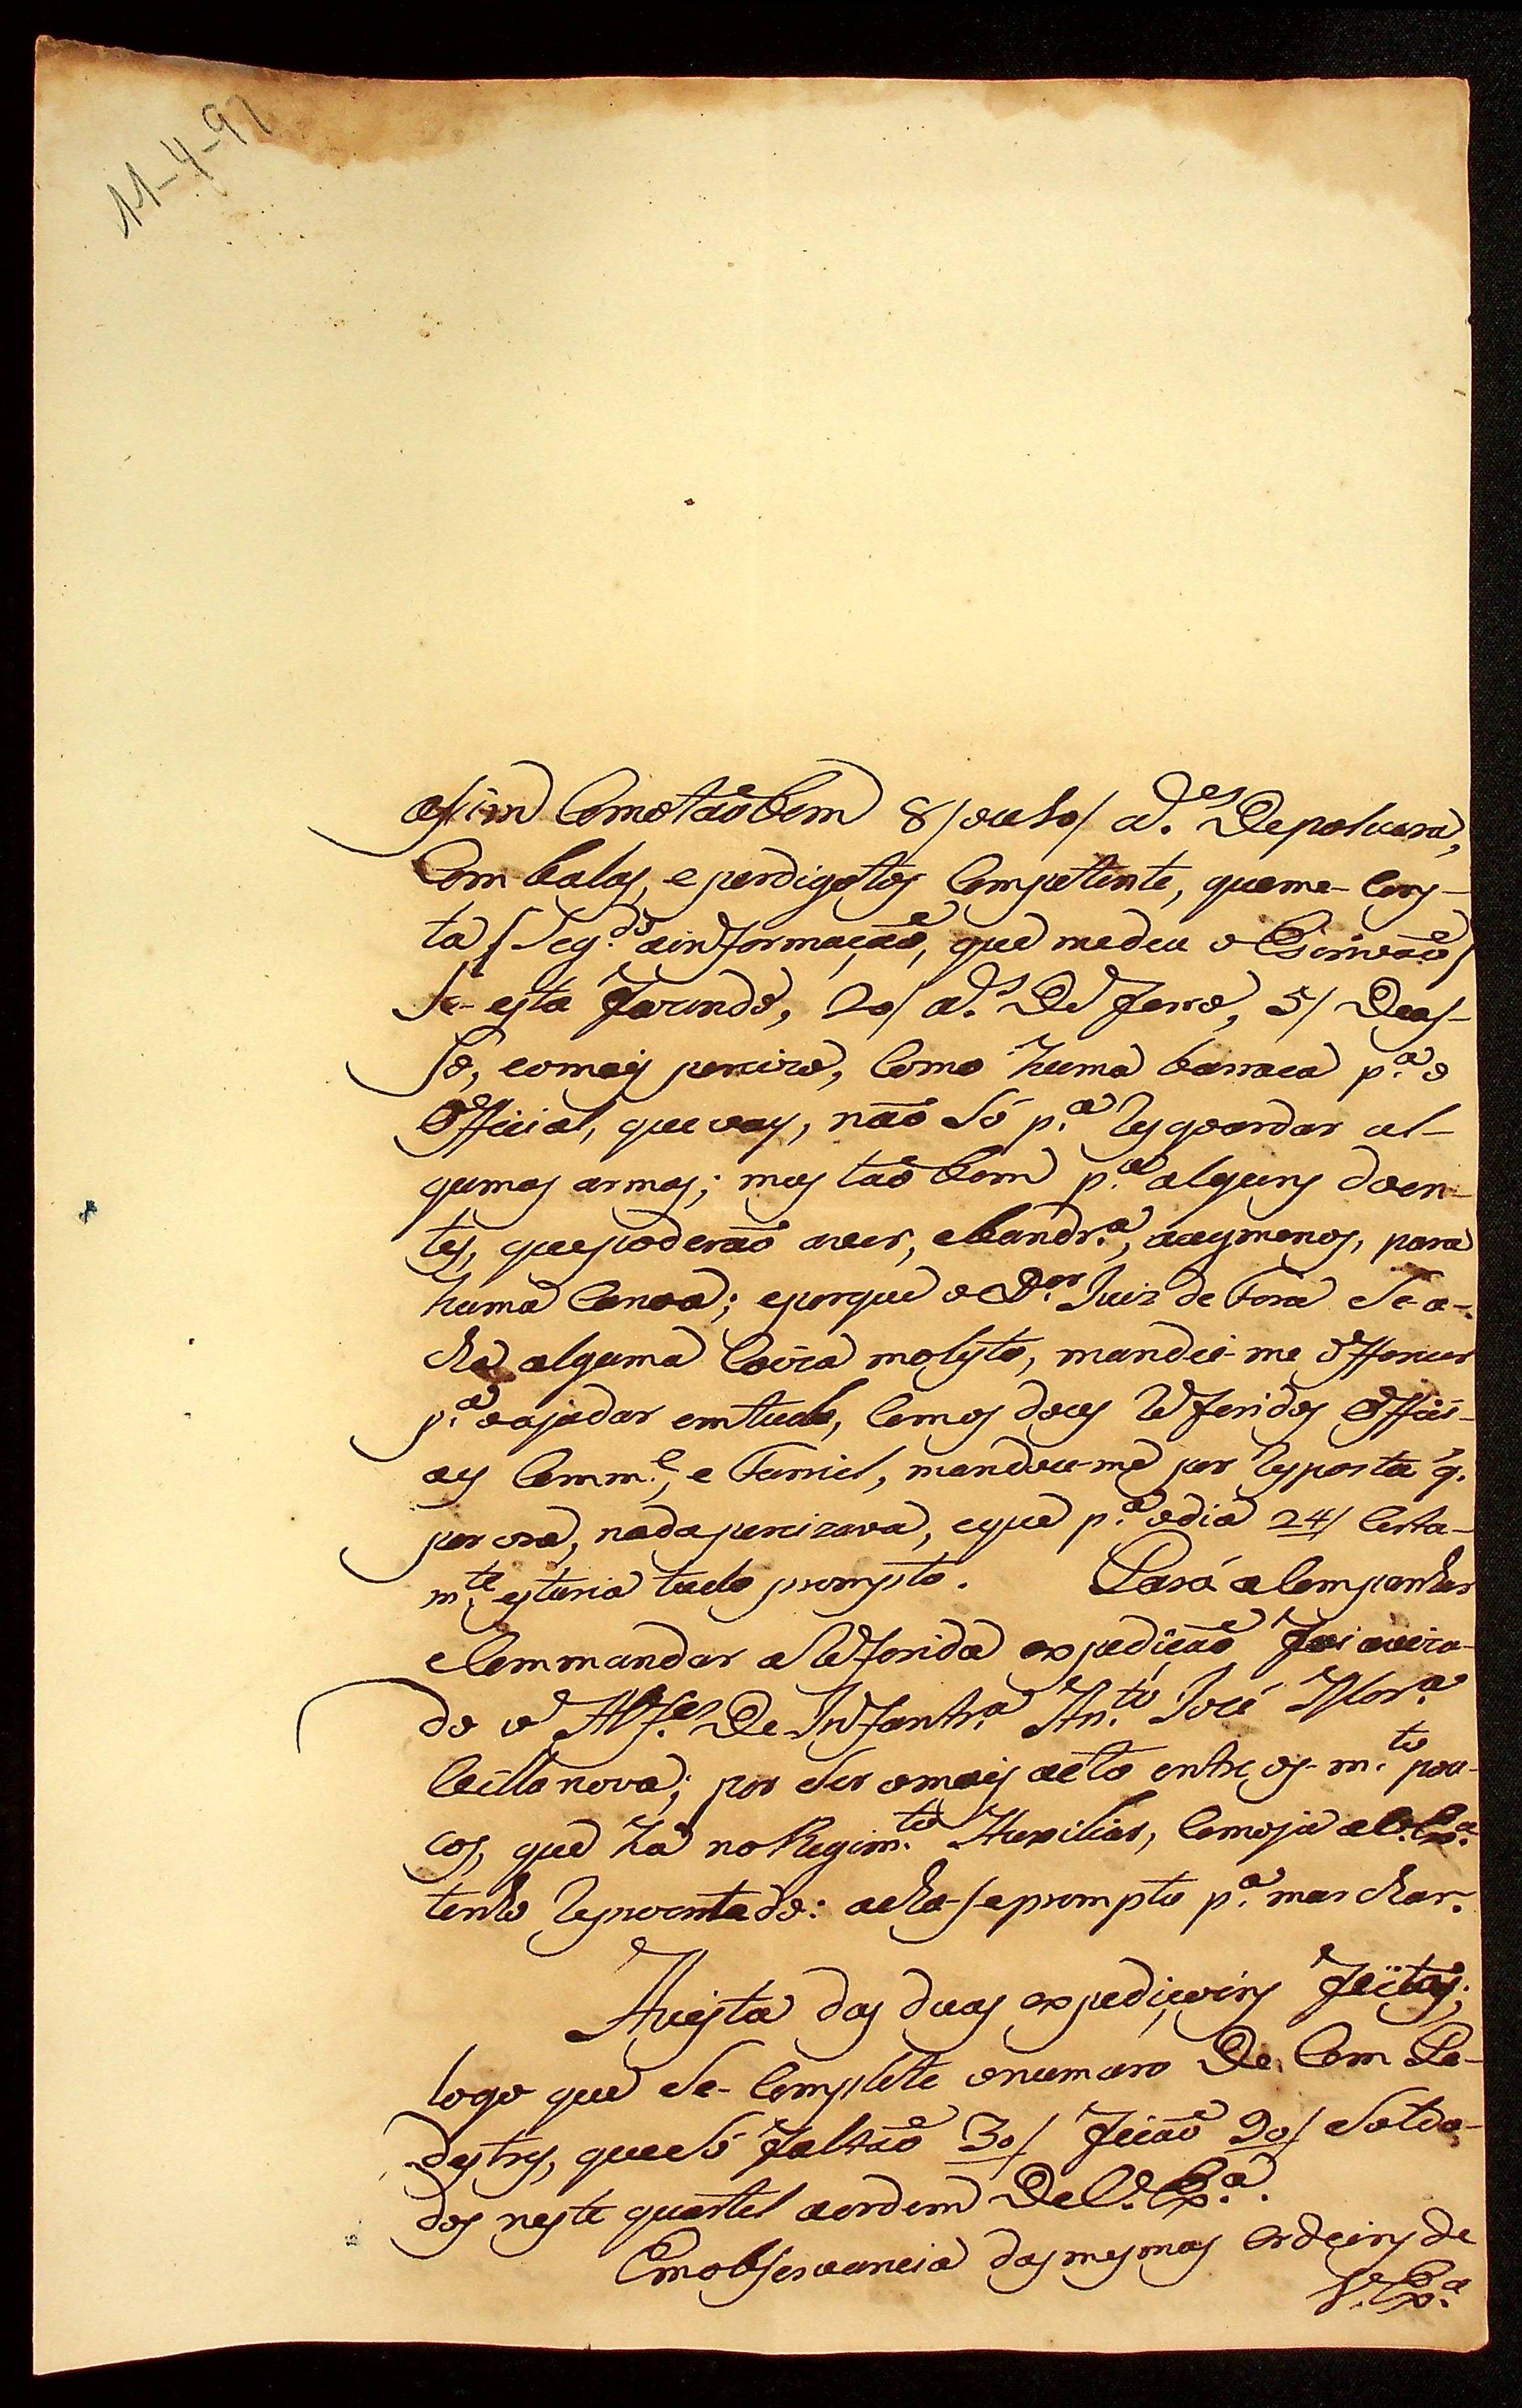 11-4-97
assim Como taõbem 8/outo/ @.es De polvera,
Com balas, e perdigotos Competente, que me-Cons-
ta /Seg.do a informação, que me deu o Escrivaõ/
Se-esta fazendo, 20/ @.s De ferro, 5/ De as-
so, e o mais percizo, Como huma barraca p.a o
Official, que vay, naõ Só p.a resgoardar al-
gumas armas; mas taõ bem p.a alguns doen-
tes, que poderaõ aver, e bandr.a, ao menos, para
huma Canoa; e porque o D.or Juiz de Fora Se-a-
cha alguma Coiza molesto, mandei-me offerecer
p.a o ajudar em tudo, Com os dous referidos Offici-
aes Comm.e, e Farriel, mandou-me por resposta q.
por ora, nada percizava, e que p.a o dia 24/ Certa-
m.te estaria tudo prompto. Pará a Companhar
e Commandar a referida expediçaõ foi aviza-
do o Alf.es De Infantr.a An.to José Per.a
Villa nova; por Ser o mais acto entre os m.to pou-
cos, que há no Regim.to Auxiliar, Como já a V. Ex.a
tenho reprezentado: acha-se prompto p.a marchar.
Avista das duas expediçoins feitas;
logo que Se-Complete o numaro De Cem Pe-
destres, que Só faltaõ 30/ ficaõ 20/ Solda-
dos neste quartel a ordem De V. Ex.a.
Em observancia das mesmas Ordeins de
V. Ex.a